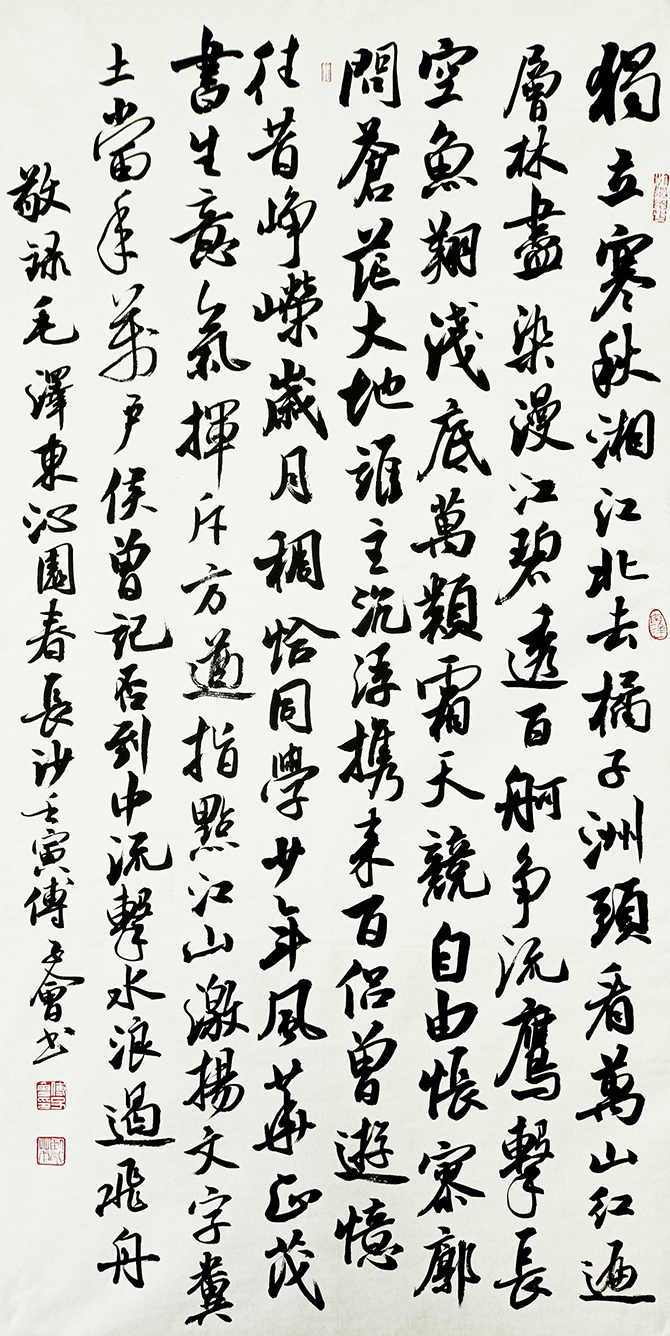 獨立寒秋湘江北去橘子洲頭看萬山紅遍
層林盡染漫江碧透百舸争流鷹擊長
空魚翔淺底萬類霜天競自由悵寥廓
問蒼茫大地誰主沉浮攜来百侣曾遊憶
往昔峥嶸歲月稠恰同學少年風華正茂
書生意氣揮斥方遒指點江山激揚文字糞
土當年萬户侯曾記否到中流擊水浪遏飛舟
敬録毛澤東沁園春長沙壬寅傅會书